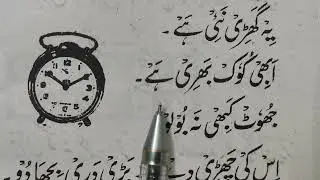 یہ گھڑی نئی ہے۔
ابھی کُوک بھری ہے۔
جھوٹ کبھی نہ بولو
اِس کی چھڑی بڑی دری بچھا دو۔